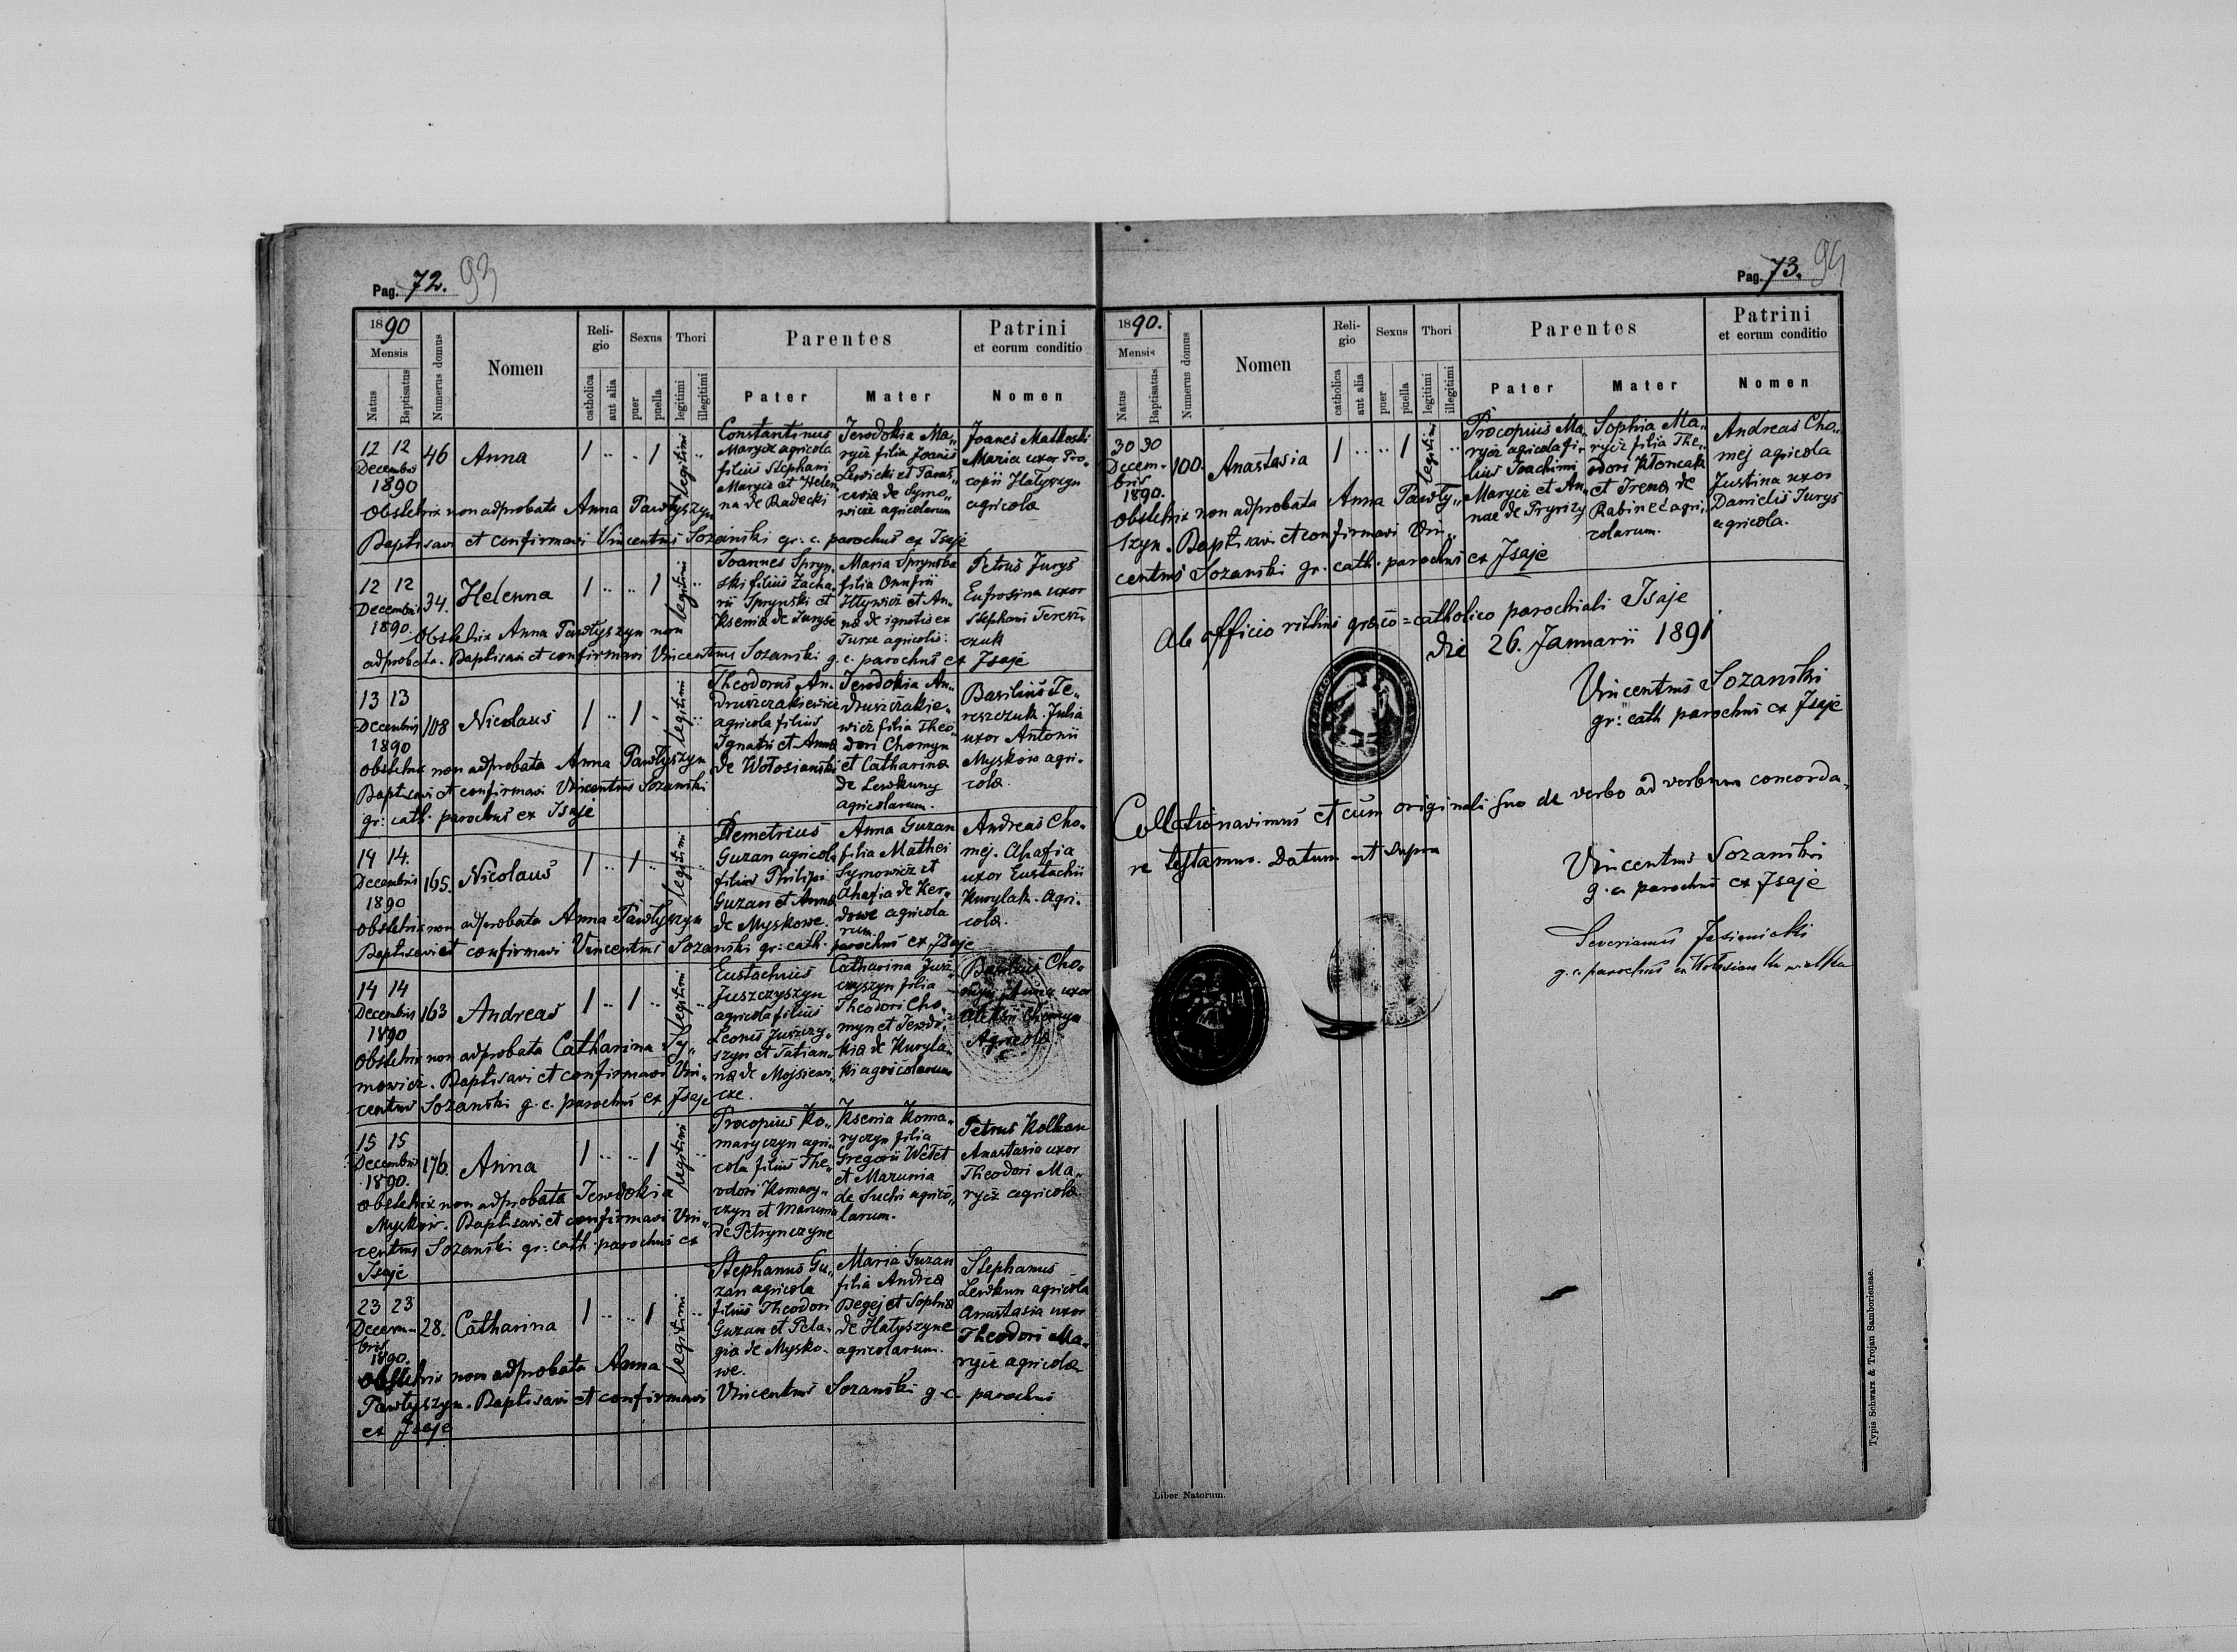 Pag. 72. 93
1890
Mensis
Natus
Baptisatus
Numerus domus
Nomen
Reli-
gio
catholica
aut alia
Sexus
puer
puella
Thori
legitimi
illegitimi
Parentes
Pater
Mater
Patrini
et eorum conditio
Nomen
12 12
Decembris
1890
46 Anna 1 .. .. 1 legitimi ..
Constantinus
Marycz agricola
filius Stephani
Marycz et Helen
na de Radecki
Jewdokia Ma„
rycz filia Joanis
Lewicki et Paras„
cevia de Symo„
wicze agricolarum
Joanes Matkoski
Maria uxor Pro„
copii Hałyszyn
agricola
Obstetrix non adprobata Anna Pawłyszyn
Baptisavi et confirmavi Vincentius Sozański gr. c. parochus ex Isaje
12 12
Decembris
1890.
34. Helenna 1 .. .. 1 legitimi ..
Joannes Spryn„
ski filius Zacha„
rii Sprynski et
Ksenia de Juryse
Maria Sprynska
filia Onufrii
Hływicz et An„
na de ignotis ex
Turze agricolis.
Petrus Jurys
Eufrosina uxor
Stephani Teresz„
czuk
Obstetrix Anna Pawłyszyn non
adprobata. Baptisavi et confirmavi Vincentius Sozanski g. c. parochus ex Isaje
13 13
Decembris
1890
108 Nicolaus 1 .. 1 .. legitimi ..
Theodorus An„
druszczakiewicz
agricola filius
Ignatii et Anna
de Wołosianski
Jewdokia An„
druszczakie„
wicz filia Theo„
dori Chomyn
et Catharina
de Lewkuny
agricolarum.
Basilius Te„
reszczuk. Julia
uxor Antonii
Myskow agri„
cola.
Obstetrix non adprobata Anna Pawłyszyn
Baptisavi et confirmavi Vincentius Sozanski
gr: cath. parochus ex Isaje
14 14.
Decembris
1890
165. Nicolaus 1 .. 1 .. legitimi ..
Demetrius
Guzan agricola
filius Philipi
Guzan et Anna
de Myskowe
Anna Guzan
filia Mathei
Symowicz et
Ahafia de Ker„
dowe agricola
rum.
Andreas Cho„
mej. Ahafia
uxor Eustachii
Kurylak. Agri„
cola.
Obstetrix non adprobata Anna Pawłyszyn
Baptisavi et confirmavi Vincentius Sozanski gr: cath. parochus ex Isaje
14 14
Decembris
1890
163 Andreas 1 .. 1 .. legitimi ..
Eustachius
Juszczyszyn
agricola filius
Leonis Juszczy„
szyn et Tatian„
na de Mojsiewi„
cze.
Catharina Jusz„
czyszyn filia
Theodori Cho„
myn et Jewdo„
kia de Kuryla„
ki agricolarum
Basilius Cho„
myn Anna uxor
Aleksii Chomyn
Agricola
Obstetrix non adprobata Catharina Sy„
mowicz. Baptisavi et confirmavi Vin„
centius Sozanski g. c. parochus ex Isaje
15 15
Decembris
1890.
176. Anna 1 .. .. 1 legitimi ..
Procopius Ko„
maryczyn agri„
cola filius The„
odori Komary„
czyn et Marunia
de Petrynczyne
Ksenia Koma„
ryczyn filia
Gregorii Wełet
et Marunia
de Suchi agrico„
larum.
Petrus Kolkan
Anastasia uxor
Theodori Ma„
rycz agricola.
Obstetrix non adprobata Jewdokia
Myskow. Baptisavi et confirmavi Vin„
centius Sozanski gr: cath. parochus ex
Isaje
23 23
Decem„
bris
1890.
28. Catharina 1 .. .. 1 legitimi ..
Stephanus Gu„
zan agricola
filius Theodori
Guzan et Pela„
gia de Mysko„
we.
Maria Guzan
filia Andrea
Degej et Sophia
de Hałyszyne
agricolarum.
Stephanus
Lewkun agricola
Anastasia uxor
Theodori Ma„
rycz agricola
Obstetrix non adprobata Anna
Pawłyszyn. Baptisavi et confirmavi Vincentius Sozanski g. c. parochus
ex Isaje
Pag. 73. 94
1890.
Mensis
Natus
Baptisatus
Numerus domus
Nomen
Reli-
gio
catholica
aut alia
Sexus
puer
puella
Thori
legitimi
illegitimi
Parentes
Pater
Mater
Patrini
et eorum conditio
Nomen
30 30
Decem„
bris
1890.
100. Anastasia 1 .. .. 1 legitimi ..
Procopius Ma„
rycz agricola fi„
lius Joachimi
Marycz et An„
nae de Pryrizy
Sophia Ma„
rycz filia The„
odori Kłoncak
et Irena de
Rabineć agri„
colarum.
Andreas Cho„
mej agricola
Justina uxor
Danielis Jurys
agricola.
Obstetrix non adprobata Anna Pawły„
szyn. Baptisavi et confirmavi Vin„
centius Sozanski gr. cath. parochus ex Isaje
Ab officio rithus græco=catholico parochiali Isaje
die 26. Januarii 1891.
Vincentius Sozanski
gr: cath parochus ex Isaje
Collationavimus et cum originali suo de verbo ad verbum concorda„
re testamur. Datum ut supra
Vincentius Sozanski
g. c. parochus ex Isaje
Severianus Jasienicki
g. c. parochus ex Wołosianka wielka
Liber Natorum.
Typis Schwarz & Trojan Samboriensae.